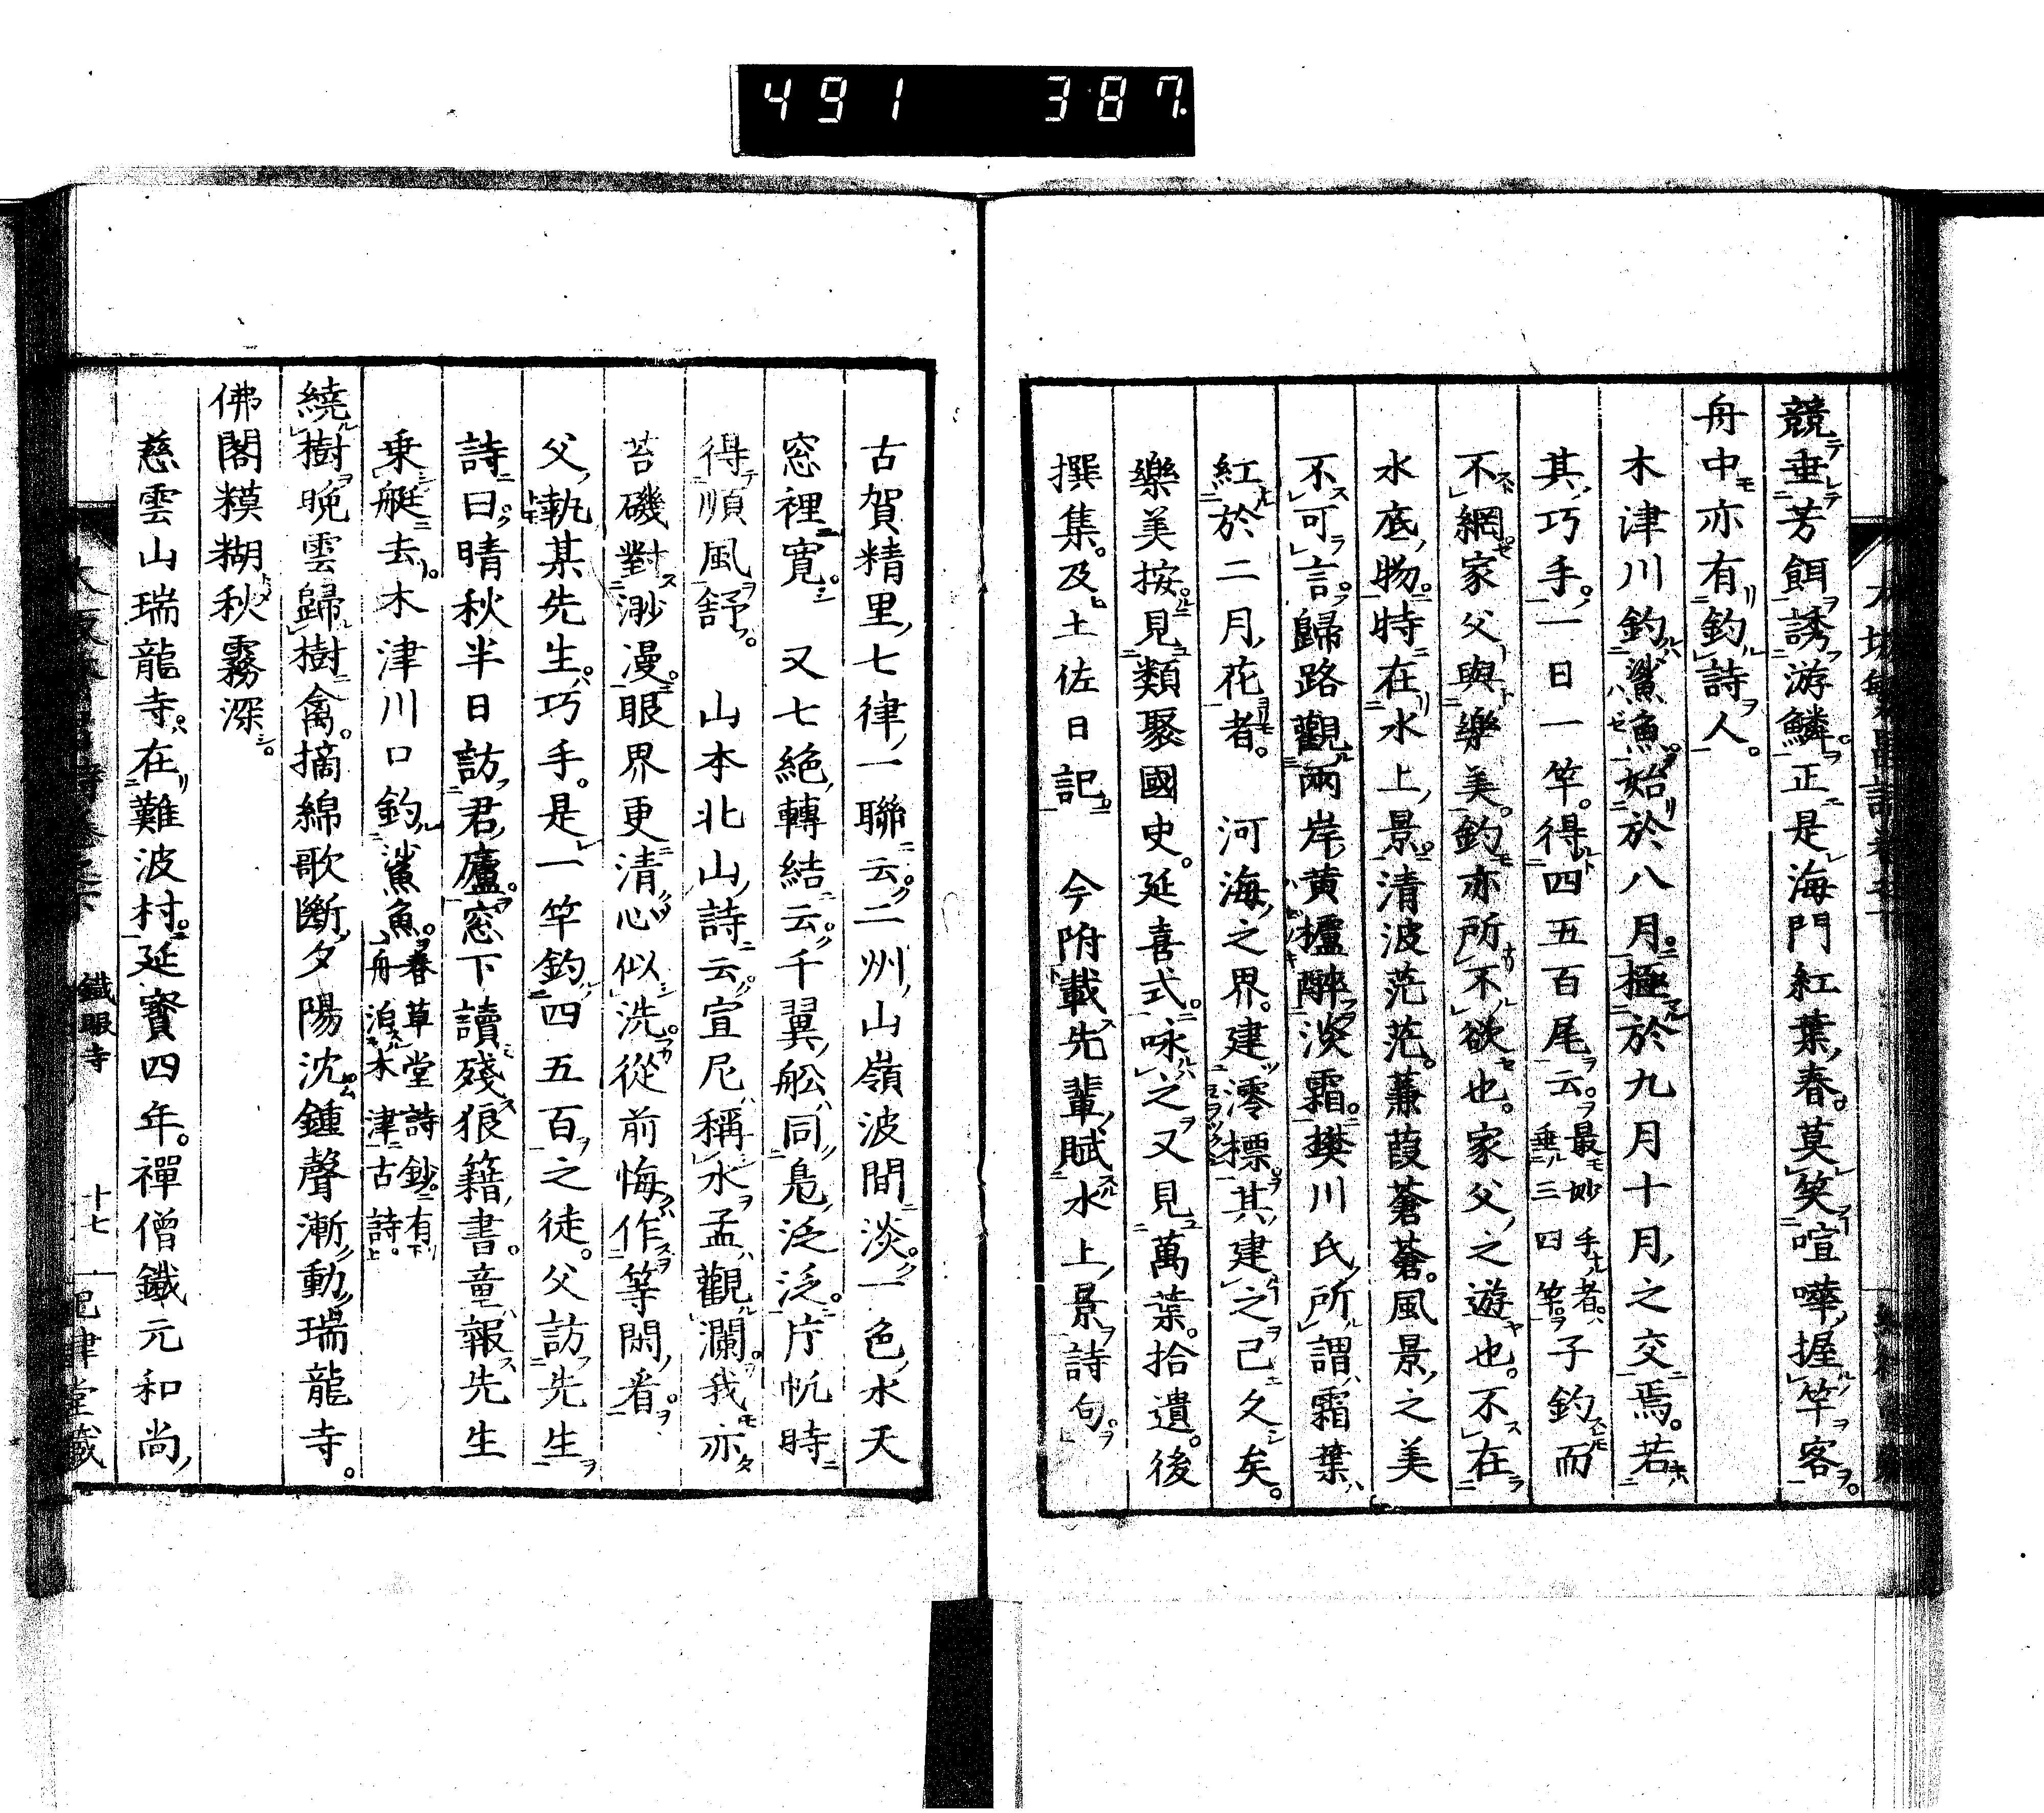 491 387
競垂芳餌誘游鱗正是海門紅葉春莫笑喧嘩握竿客
舟中亦有釣詩人
木津川釣鯊魚始於八月極於九月十月之交焉若
其巧手一日一竿得四五百尾云最妙手者垂三四竿子釣而
不網家父與樂美釣亦所不欲也家父之遊也不在
水底物特在水上景清波茫茫蒹葭蒼蒼風景之美
不可言歸路觀兩岸黄櫨醉淡霜樊川氏所謂霜葉
紅於二月花者 河海之界建澪標其建之已久矣
樂美按見類聚國史延喜式咏之又見萬葉拾遺後
撰集及土佐日記 今附載先輩賦水上景詩句
古賀精里七律一聯云二州山嶺波間淡一色水天
窓裡寛 又七絶轉結云千翼舩同鳧泛泛片帆時
得順風舒 山本北山詩云宣尼稱水孟觀瀾我亦
苔磯對渺漫眼界更清心似洗從前悔作等閑看
父執某先生巧手是一竿釣四五百之徒父訪先生
詩曰晴秋半日訪君廬窓下讀殘狼籍書童報先生
乗艇去木津川口釣鯊魚春草堂詩鈔有舟泊木津古詩
繞樹晩雲歸樹禽摘綿歌斷夕陽沈鍾聲漸動瑞龍寺
佛閣糢糊秋霧深
慈雲山瑞龍寺在難波村延寳四年禪僧鐵元和尚
鐵眼寺 十七